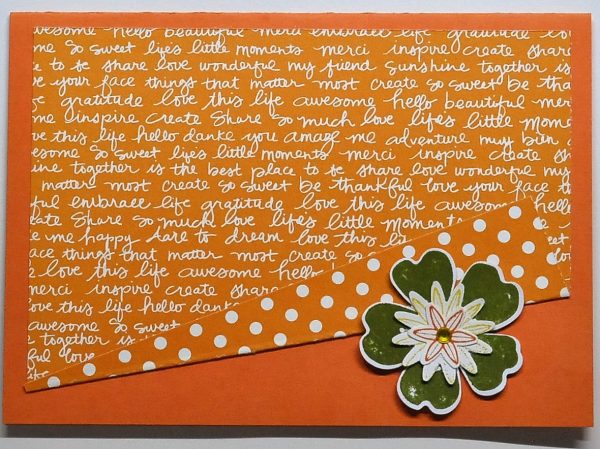 awesome hello beautiful merci embrace life gratitude
me So sweet life's little moments merci inspire create share
e to be share love wonderful my friend Sunshine together is
ve your face things that matter most create So sweet be tha
e gratitude love this life awesome hello beautiful mer
me inspire create Share So much love life's little mom
ve this life hello danke you amaze me adventure muy bien
esome So sweet life's little moments merci inspire create s
ine together is the best place to be share love wonderful my
matter most create So sweet be thankful love your face t
ful embrace life gratitude love this life awesome hello
eate Share So much love life's little Moments
e me happy dare to dream love this li sweet
ace things that matter most create So s love
s love this life awesome hello
merci inspire create share
love this life hello danke
awesome So sweet
e together is
ful love
like